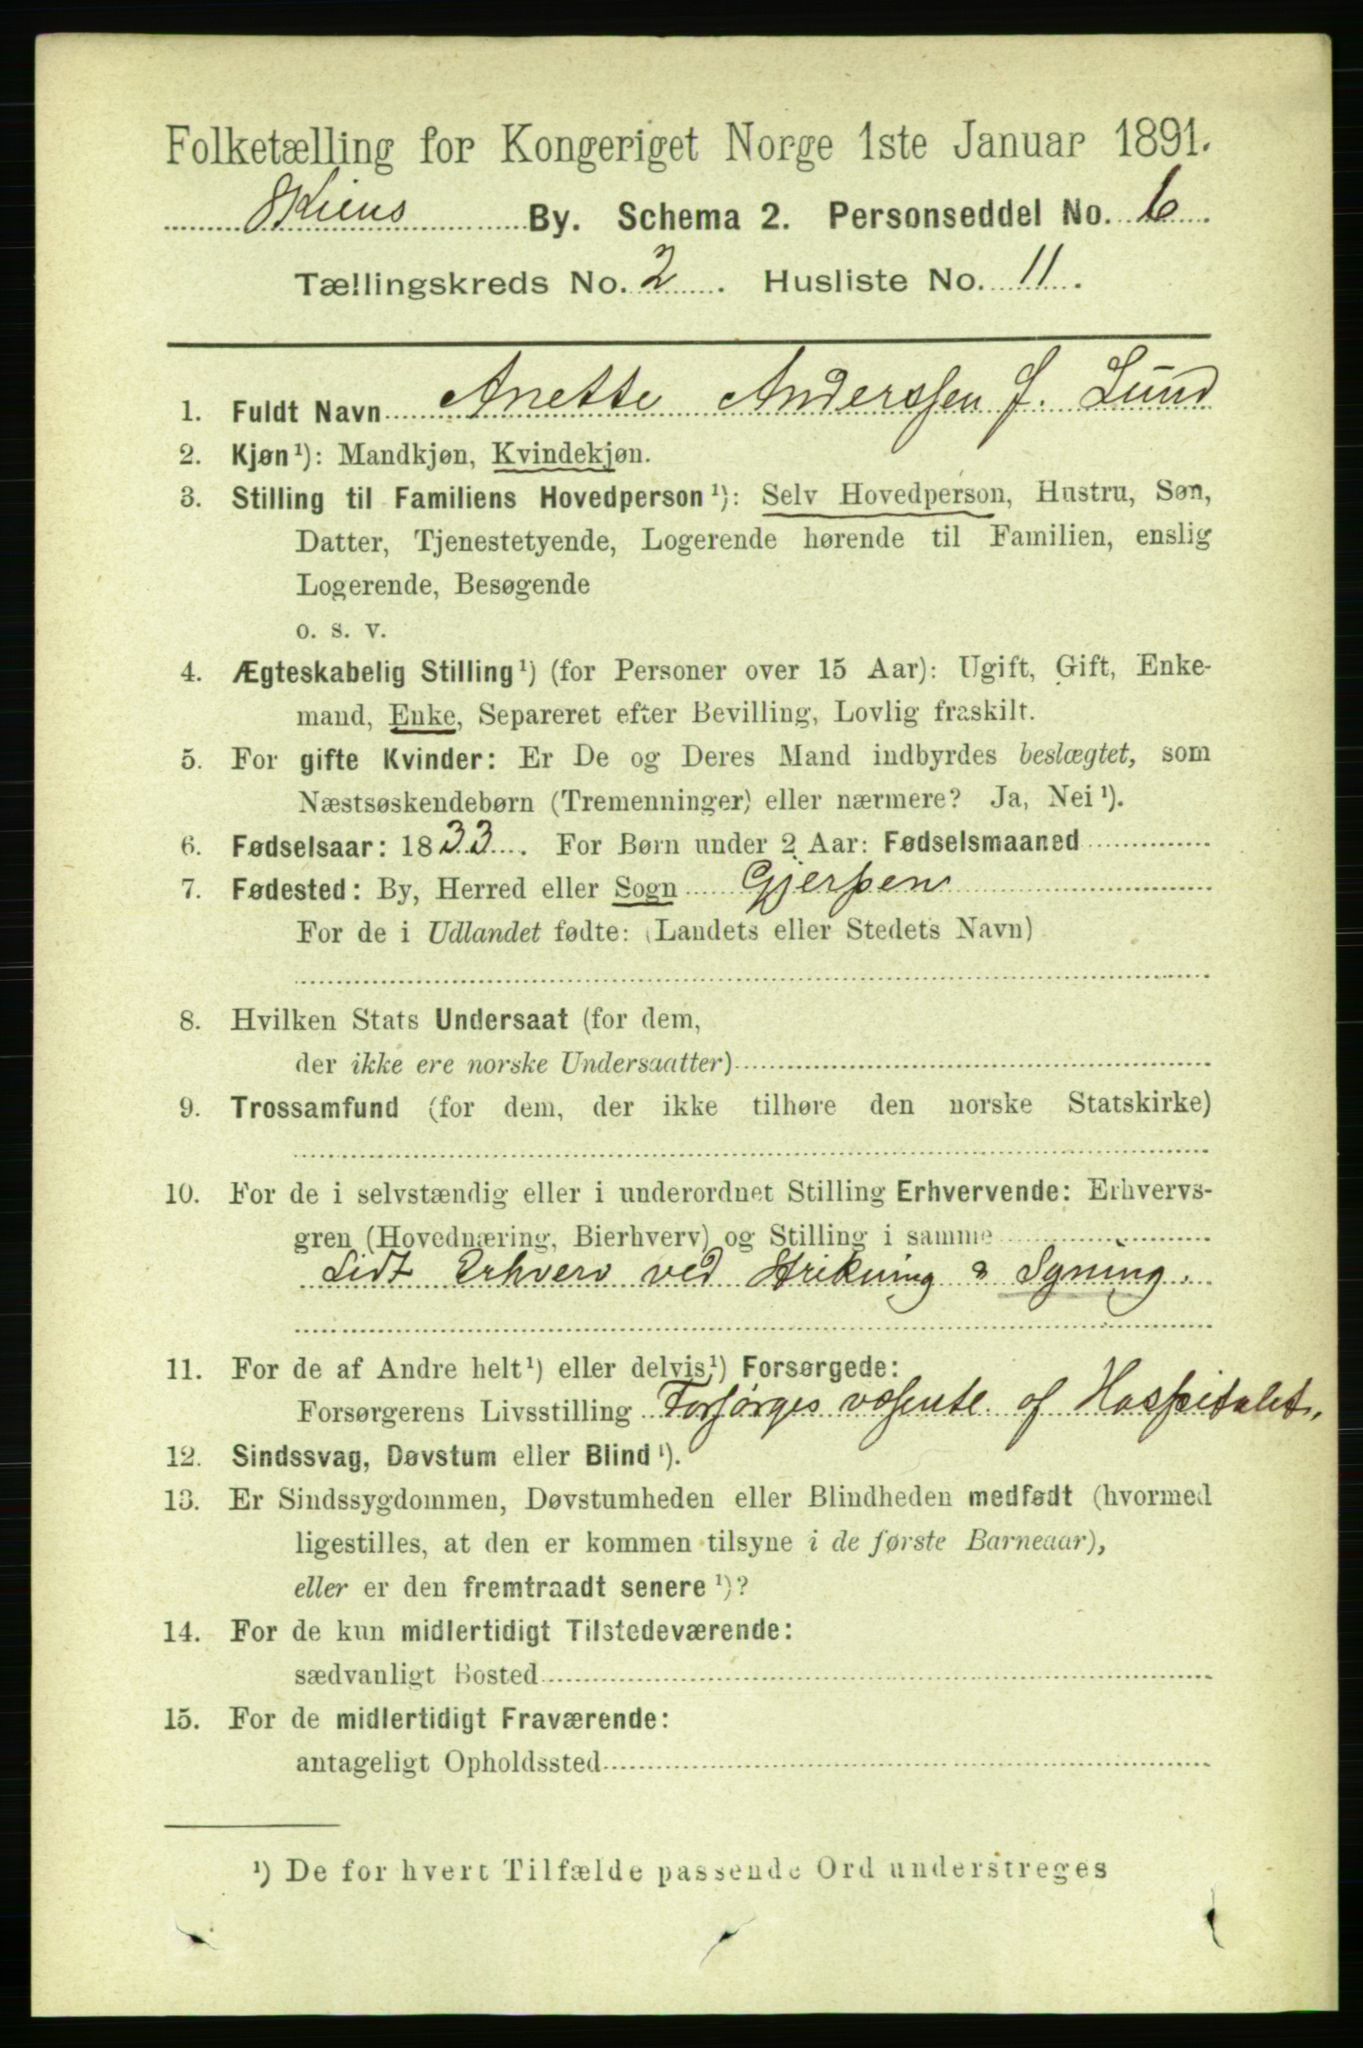 Folketælling for Kongeriget Norge 1ste Januar 1891.
Skiens By. Schema 2. Personseddel No. 6.
Tællingskreds No. 2. Husliste No. 11.
1. Fuldt Navn Anette Anderssen f. Lund
2. Kjøn¹): Mandkjøn, Kvindekjøn.
3. Stilling til Familiens Hovedperson¹): Selv Hovedperson, Hustru, Søn,
Datter, Tjenestetyende, Logerende hørende til Familien, enslig
Logerende, Besøgende
o. s. v.
4. Ægteskabelig Stilling¹) (for Personer over 15 Aar): Ugift, Gift, Enke-
mand, Enke, Separeret efter Bevilling, Lovlig fraskilt.
5. For gifte Kvinder: Er De og Deres Mand indbyrdes beslægtet, som
Næstsøskendebørn (Tremenninger) eller nærmere? Ja, Nei¹).
6. Fødselsaar: 1833. For Børn under 2 Aar: Fødselsmaaned
7. Fødested: By, Herred eller Sogn Gjerpen
For de i Udlandet fødte: (Landets eller Stedets Navn)
8. Hvilken Stats Undersaat (for dem,
der ikke ere norske Undersaatter)
9. Trossamfund (for dem, der ikke tilhøre den norske Statskirke)
10. For de i selvstændig eller i underordnet Stilling Erhvervende: Erhvervs-
gren (Hovednæring, Bierhverv) og Stilling i samme
Lidt Erhverv ved Strikning & Syning.
11. For de af Andre helt¹) eller delvis¹) Forsørgede:
Forsørgerens Livsstilling Forsørges væsentl. af Hospitalet.
12. Sindssvag, Døvstum eller Blind¹).
13. Er Sindssygdommen, Døvstumheden eller Blindheden medfødt (hvormed
ligestilles, at den er kommen tilsyne i de første Barneaar),
eller er den fremtraadt senere¹)?
14. For de kun midlertidigt Tilstedeværende:
sædvanligt Bosted
15. For de midlertidigt Fraværende:
antageligt Opholdssted
¹) De for hvert Tilfælde passende Ord understreges